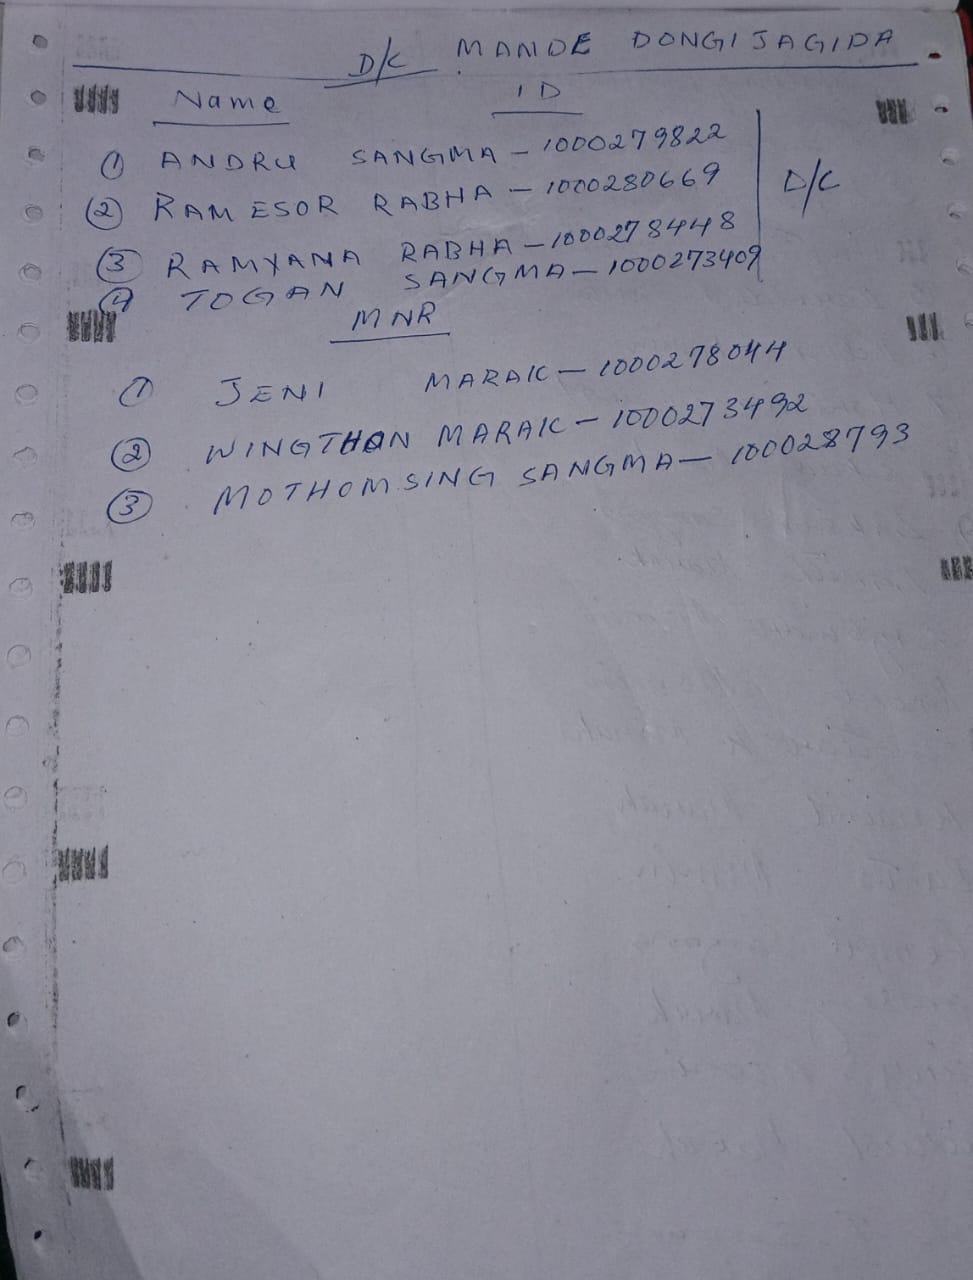 D/C MANDE DONGIJAGIDA
Name ID
① ANDRU SANGMA - 1000279822
② RAMESOR RABHA - 1000280669 D/C
③ RAMYANA RABHA - 1000278448
④ TOGAN SANGMA - 1000273409
MNR
① JENI MARAK - 1000278044
② WINGTHON MARAK - 1000273492
③ MOTHOMSING SANGMA - 100028793